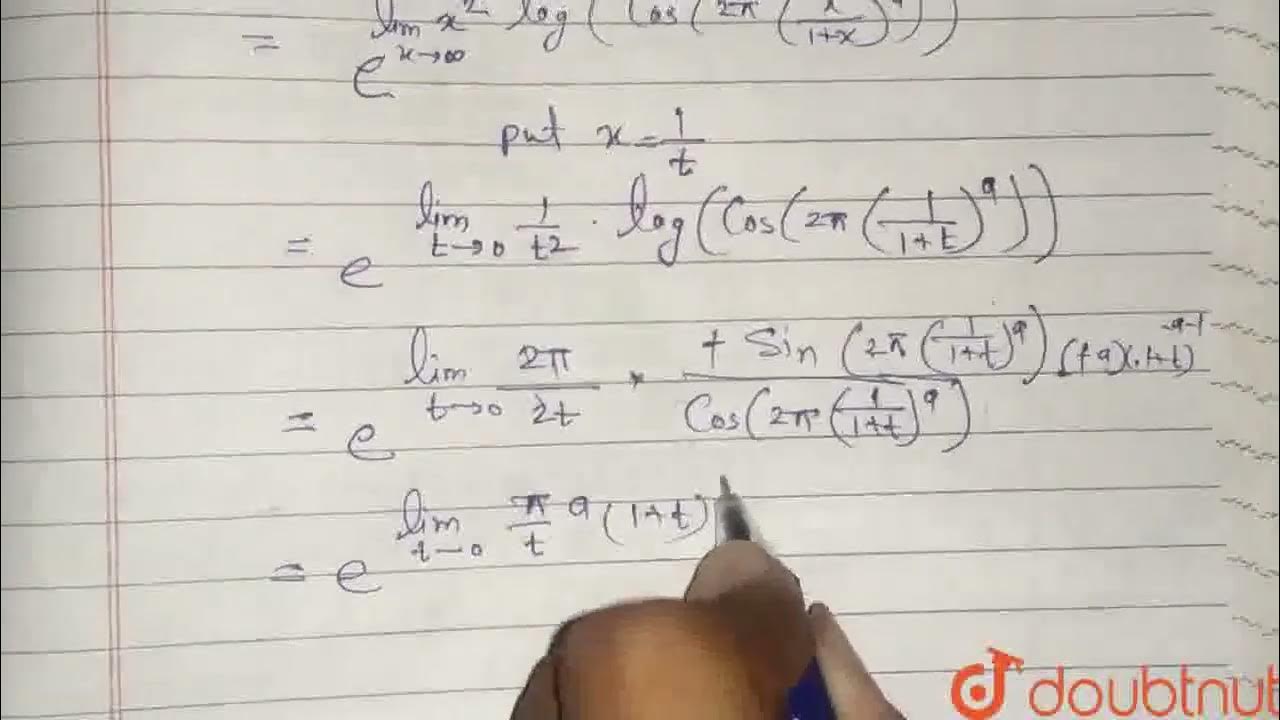 = e^{lim_{x→∞} x^2 log(Cos(2π(x/1+x)^a))}
put x = 1/t
= e^{lim_{t→0} 1/t2 · log(Cos(2π(1/1+t)^a))}
= e^{lim_{t→0} 2π/2t * + Sin(2π(1/1+t)^a)(+a)(1+t)^{-a-1} / Cos(2π(1/1+t)^a)}
= e^{lim_{t→0} π/t a(1+t)}
doubtnut